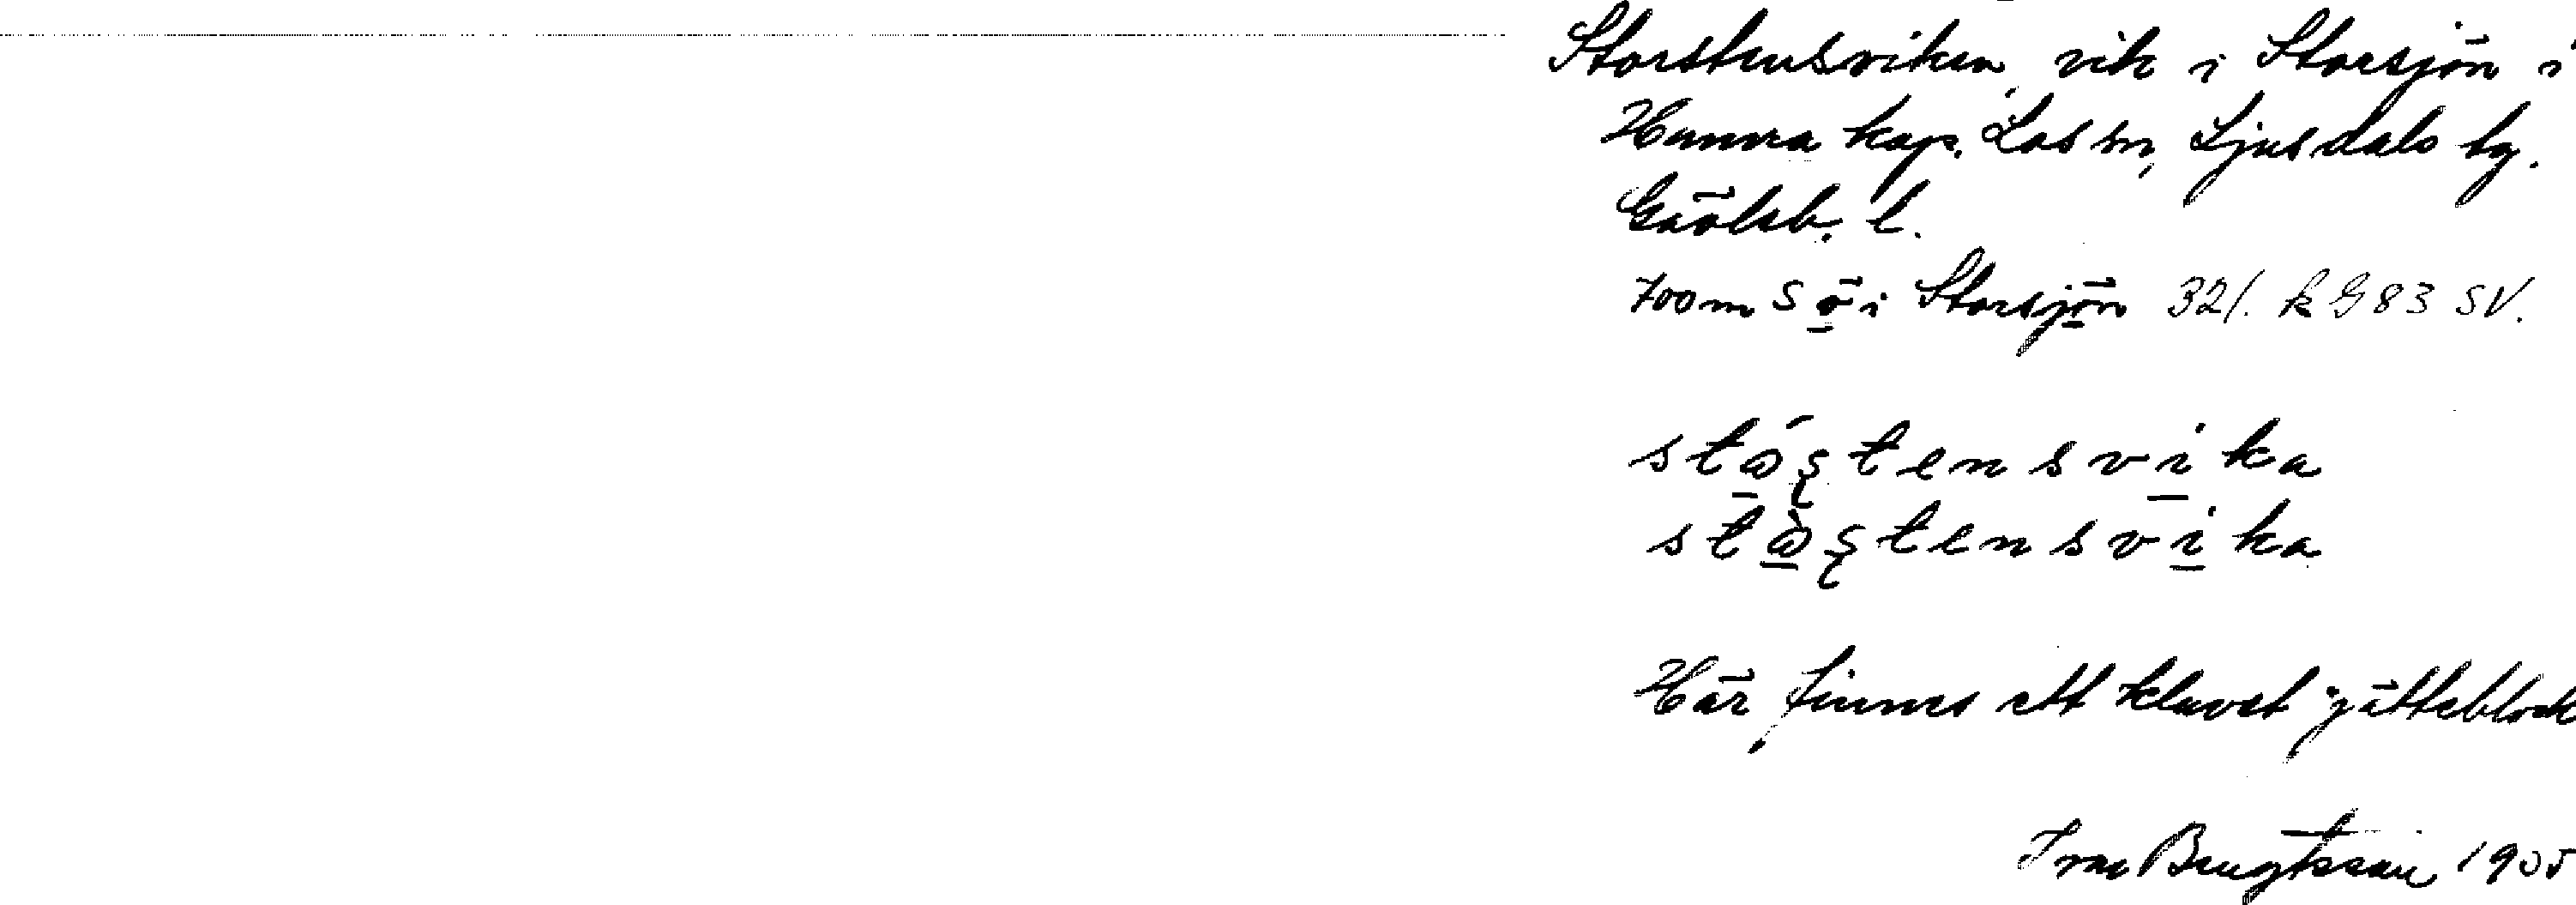 Storstensviken, vik i Storsjön i
Hamra kap. Los sn, Ljusdals tg.
Gävleb. l.
700 m S ö i Storsjön 32/. k G 83 SV.
stǻʂtensvika
stå̀ʂtensvika
Här finnes ett kluvet jätteblock
Bengtsson 19